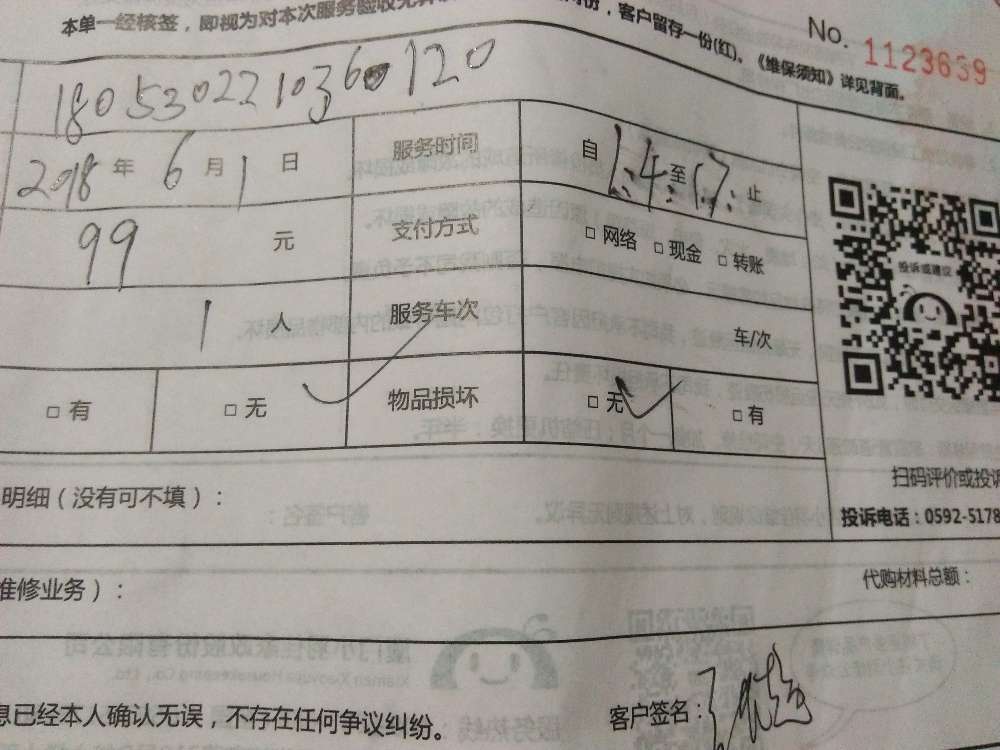 本单一经核签，即视为对本次服务验收无异
份，客户留存一份(红)。《维保须知》详见背面。
No. 1123639
180530221036 120
2018 年 6 月 1 日 服务时间 自 14: 至 17: 止
99 元 支付方式 □ 网络 □ 现金 □ 转账
投诉或建议
1 人 服务车次 车/次
□ 有 □ 无 物品损坏 □ 无 □ 有
扫码评价或投诉
明细（没有可不填）：
投诉电话：0592-5178
维修业务）： 代购材料总额：
息已经本人确认无误，不存在任何争议纠纷。 客户签名：